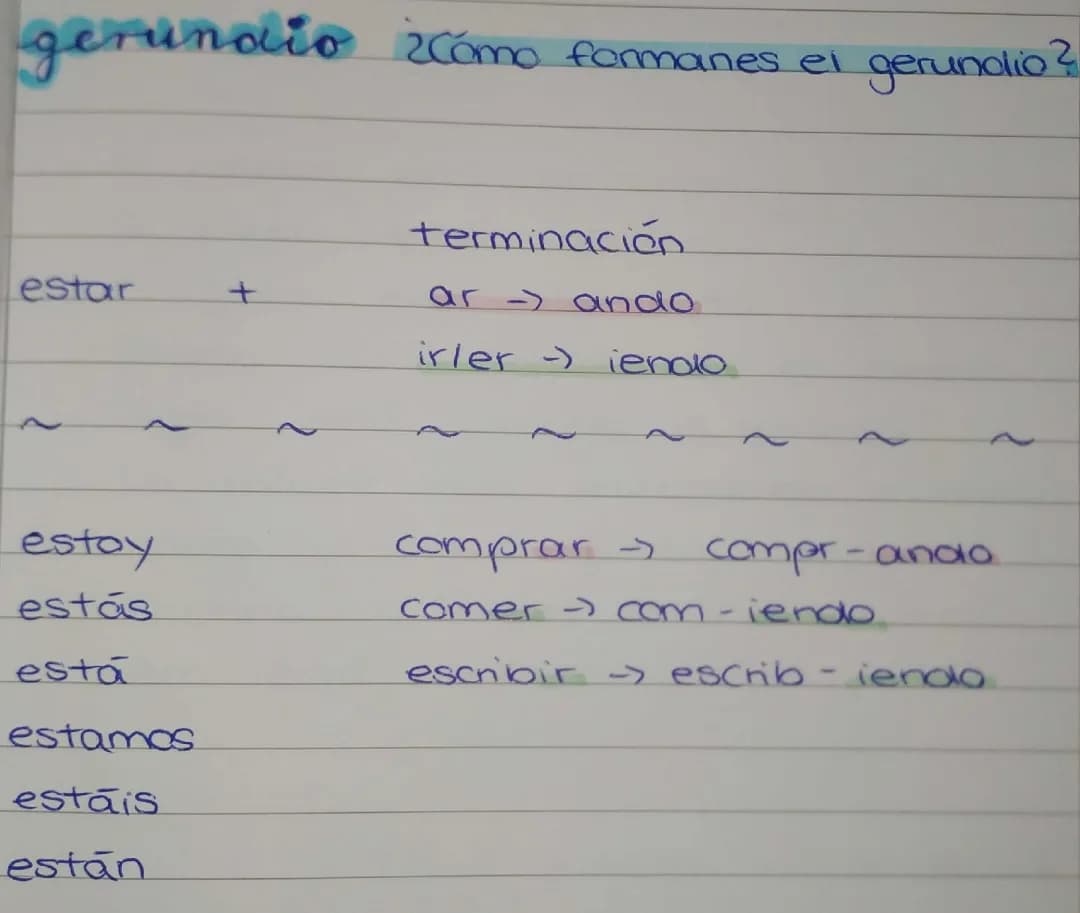 gerundio ¿Cómo formanes el gerundio?
terminación
estar + ar -> ando
ir/er -> iendo
~ ~ ~ ~ ~ ~ ~ ~ ~
estoy comprar -> compr-ando
estás comer -> com-iendo
está escribir -> escrib-iendo
estamos
estáis
están